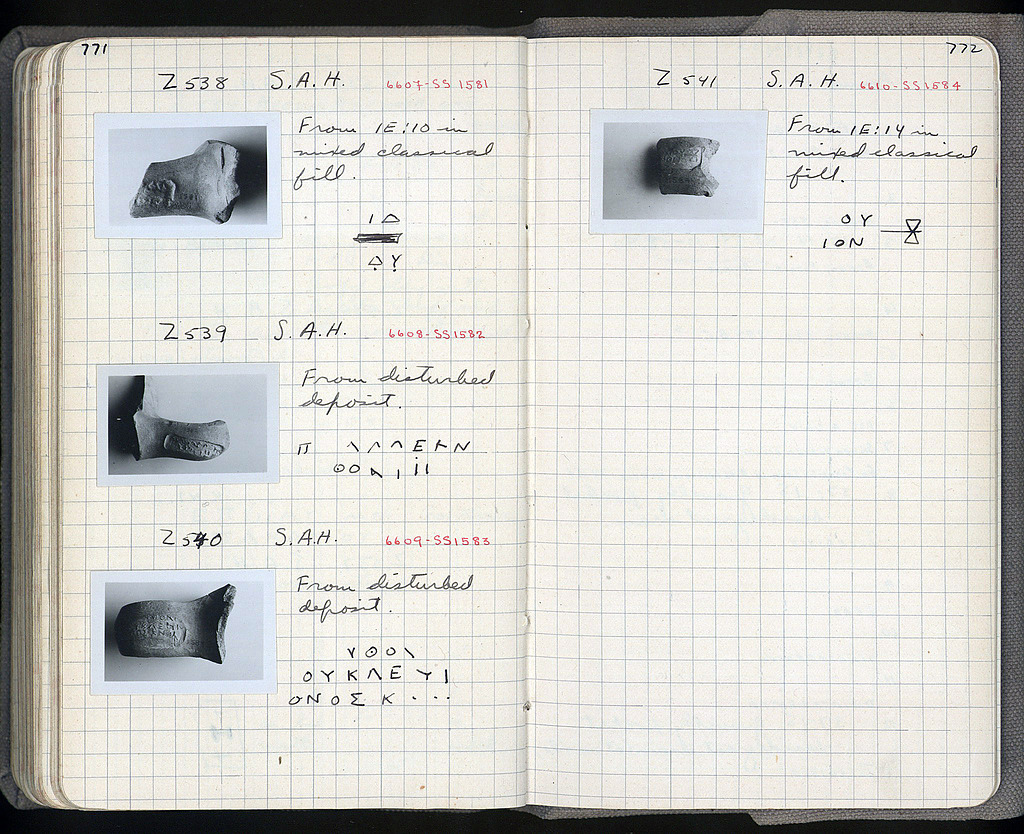 771
Z 538 S.A.H. 6607-SS 1581
From 1E:10 in
mixed classical
fill.
Ι Δ
Δ̣ Υ̣
Z 539 S.A.H. 6608-SS1582
From disturbed
deposit.
Ε Ν
Ο Ο
Z 540 S.A.H. 6609-SS1583
From disturbed
deposit.
Ο Ο
Ο Υ Κ Λ Ε Υ Ι
Ο Ν Ο Σ Κ . . .
772
Z 541 S.A.H. 6610-SS1584
From 1E:14 in
mixed classical
fill.
Ο Υ
Ι Ο Ν